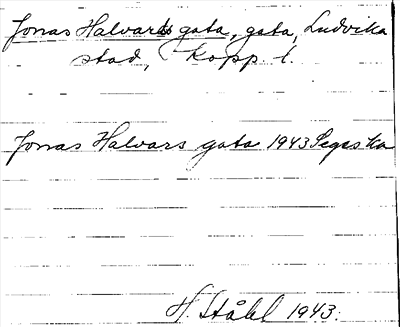 Jonas Halvards gata, gata, Ludvika
stad, Kopp. l.
Jonas Halvars gata 1943 Segeska
H. Ståhl 1943.